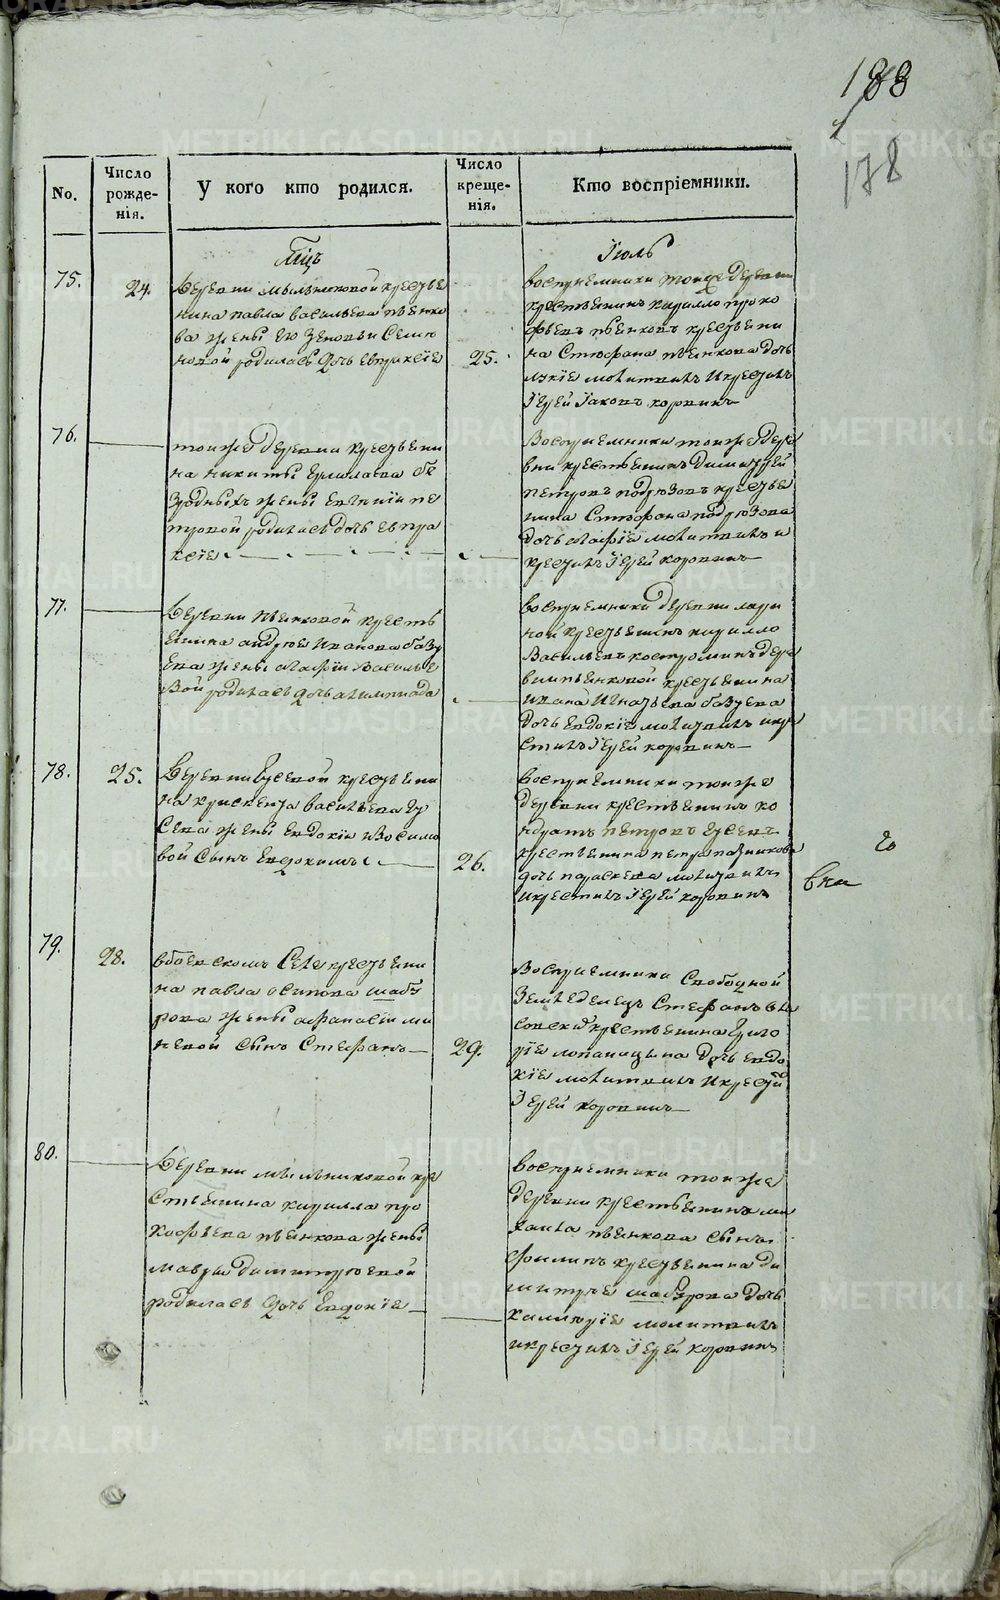 188
178
No.
Число
рожде-
нія.
У кого кто родился.
Число
креще-
нія.
Кто воспріемники.
Мцъ
Іюль
75.
24.
Деревни мыльниковой крестья
нина павла васильева пьянко
ва жены его Зеновьи Семіо
новой родилась дочь евпраксіѧ
25.
воспріемники тоиже деревни
крестьянинъ кирилло проко
фьевъ пьянковъ крестьяни
на Стефана пьянкова дочь
молитвилъ икрестилъ
Іерей Іаковъ коровинъ
76.
тоиже деревни крестьяни
на никиты Ермолаева бе
зродныхъ жены евгиніи пе
тровой родилась дочь евпра
ксіѧ
Воспріемники тоиже дере
вни крестьянинъ Димитрей
петровъ подрѣзовъ крестья
нина Стефана подрѣзова
дочь агафіѧ молитвилъ и
крестилъ Іерей коровинъ
77.
Деревни пьянковой кресть
янина андреѧ иванова базу
ева жены агафіи василье
вой родилась дочь алимпиада
воспріемники деревни лари
ной крестьянинъ кирилло
Васильевъ костроминъ дере
вни пьянковой крестьянина
ивана игнатьева базуева
дочь евдокіѧ молитвилъ икре
стилъ Іерей коровинъ
78.
25.
Деревни Гусевой крестьяни
на крискента васильева Гу
Сева жены евдокіи изосимо
вой сынъ Евдокимъ
26.
воспріемники тоиже
деревни крестьянинъ ко
ндратъ петровъ Гусевъ
крестьянина петра
дочь параскева молитвилъ
икрестилъ Іерей коровинъ
79.
28.
вбоевскомъ Селе крестьяни
на павла осипова шабу
рова жены афанасіи ми
неевой сынъ Стефанъ
29.
Воспріемники Свободной
Земледелецъ Стефанъ
крестьянина Григо
ріѧ лопаницына дочь евдо
кіѧ молитвилъ икрести
Іерей коровинъ
80.
Деревни мыльниковой кре
стьянина кирилла про
кофьева пьянкова жены
мавры димитріевой
родилась дочь Евдокіѧ
воспріемники тоиже
деревни крестьянина ми
хаила пьянкова сынъ
филипъ крестьянина ди
митріѧ шабурова дочь
молитвилъ
икрестилъ Іерей коровинъ
METRIKI.GASO-URAL.RU